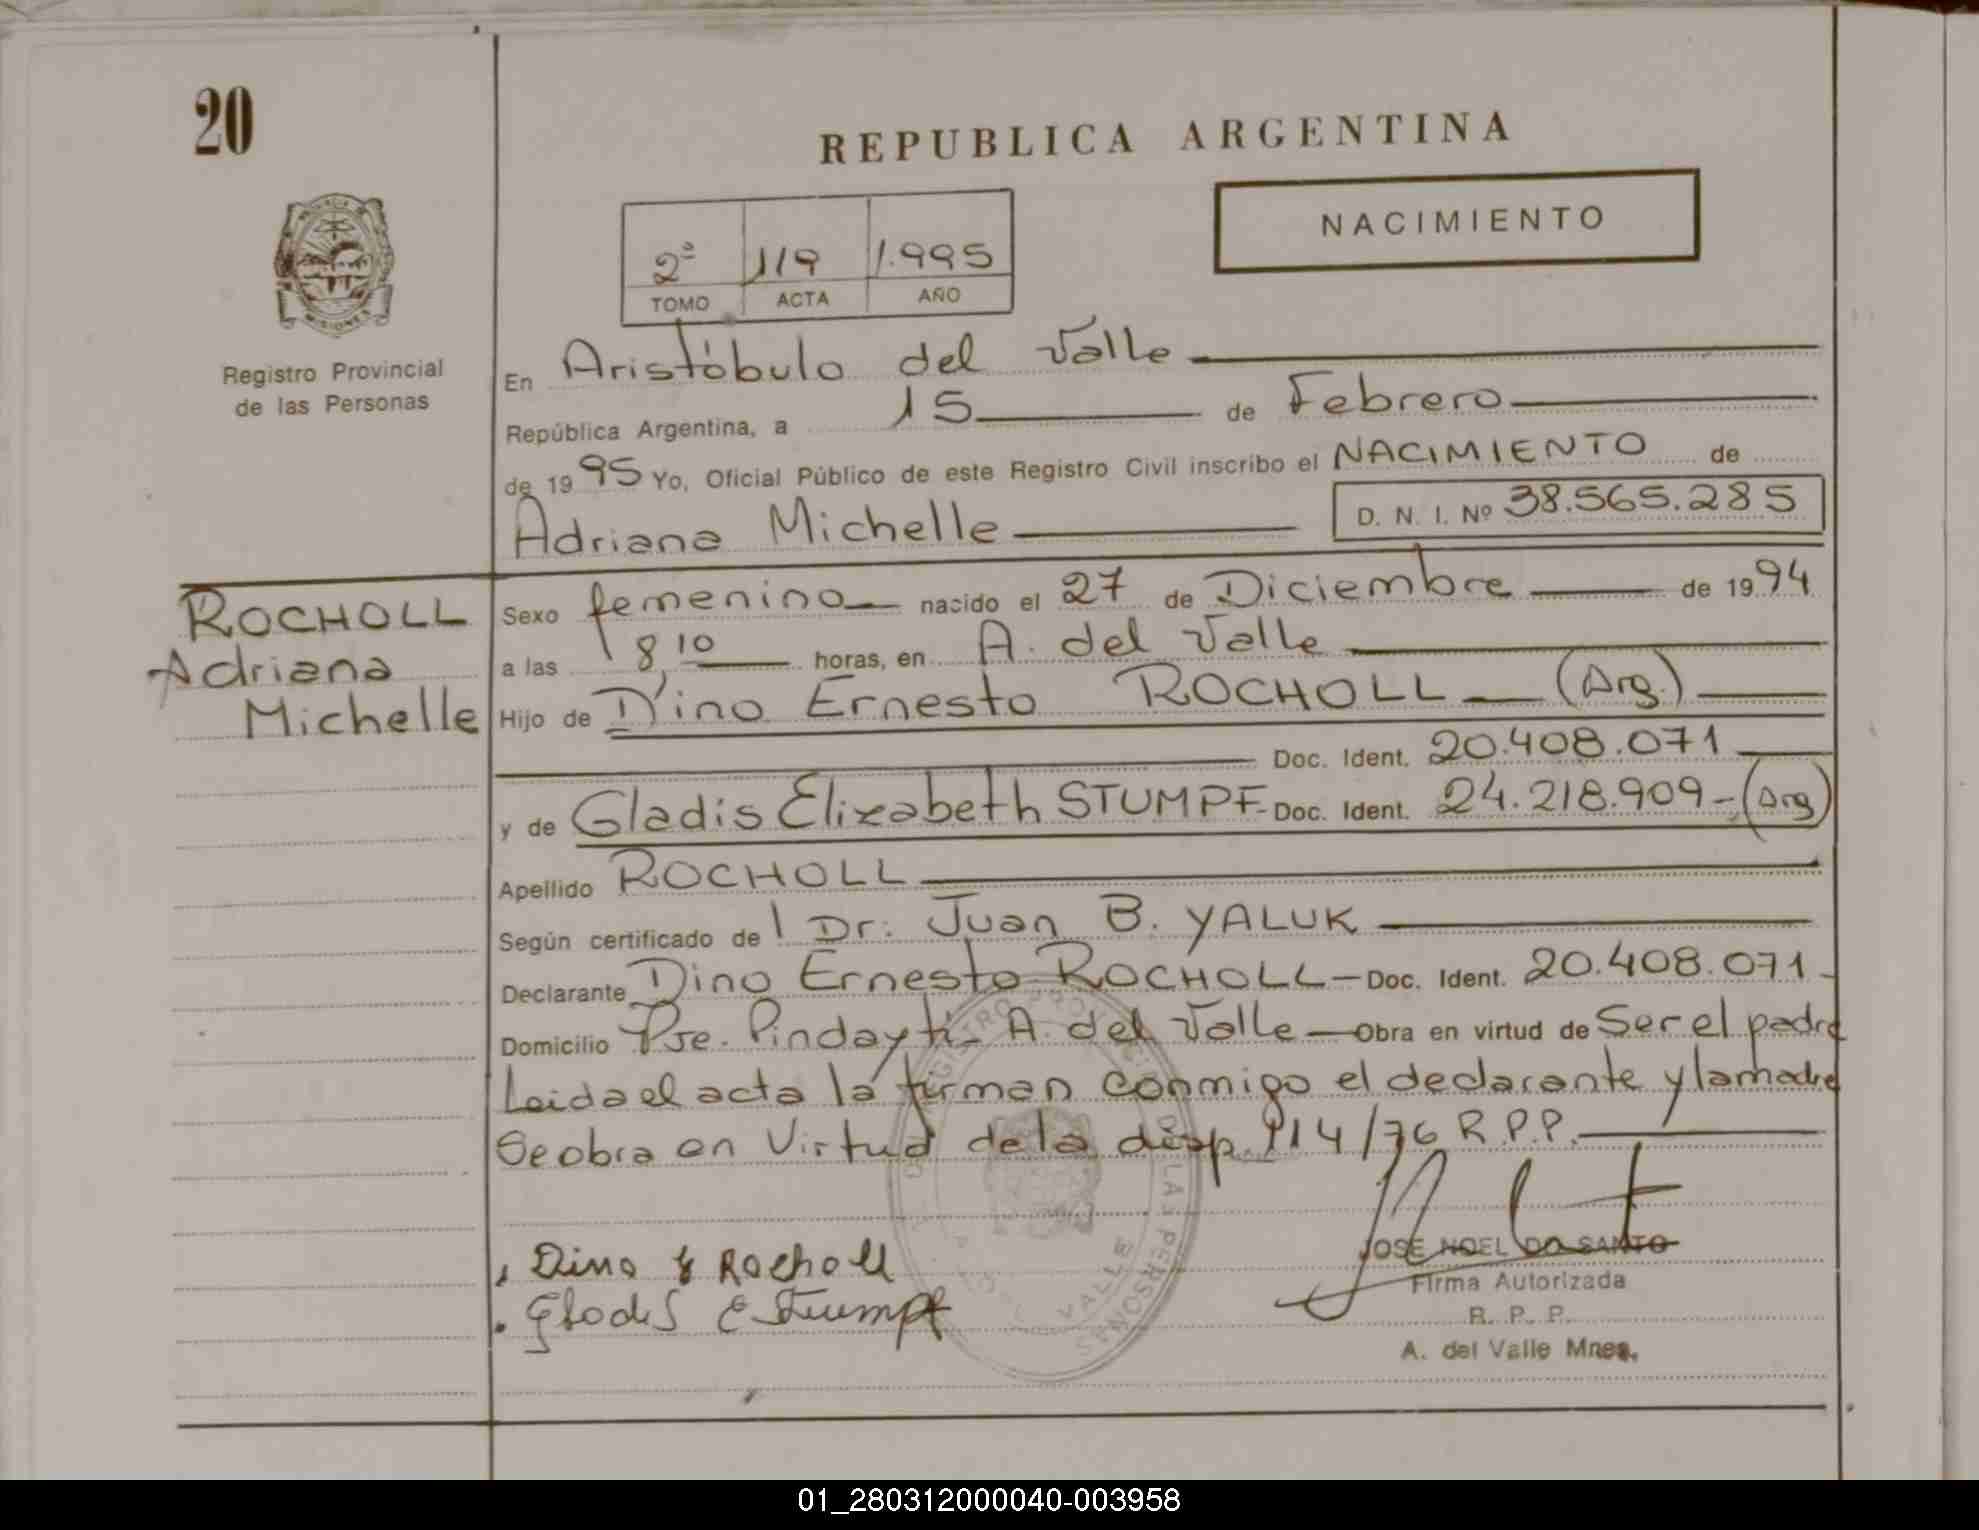 20
REPUBLICA ARGENTINA
NACIMIENTO
2ª 119 1.995
TOMO ACTA AÑO
Registro Provincial
de las Personas
En Aristóbulo del Valle
República Argentina, a 15 de Febrero
de 1995 Yo, Oficial Público de este Registro Civil inscribo el NACIMIENTO de
Adriana Michelle D. N. I. Nº 38.565.285
ROCHOLL
Adriana
Michelle
Sexo femenino nacido el 27 de Diciembre de 1994
a las 8,10 horas, en A. del Valle
Hijo de Dino Ernesto ROCHOLL (Arg.)
Doc. Ident. 20.408.071
y de Gladis Elizabeth STUMPF - Doc. Ident. 24.218.909 - (Arg)
Apellido ROCHOLL
Según certificado del Dr: Juan B. YALUK
Declarante Dino Ernesto ROCHOLL - Doc. Ident. 20.408.071 -
Domicilio Pje. Pindaytí - A. del Valle - Obra en virtud de Ser el padre
Leida el acta la firman conmigo el declarante y la madre
Se obra en Virtud de la disp. 114/76 R.P.P.
Dino E Rocholl
Gladis E Stumpf
JOSE NOEL DO SANTO
Firma Autorizada
R. P. P.
A. del Valle Mnes.
01_280312000040-003958